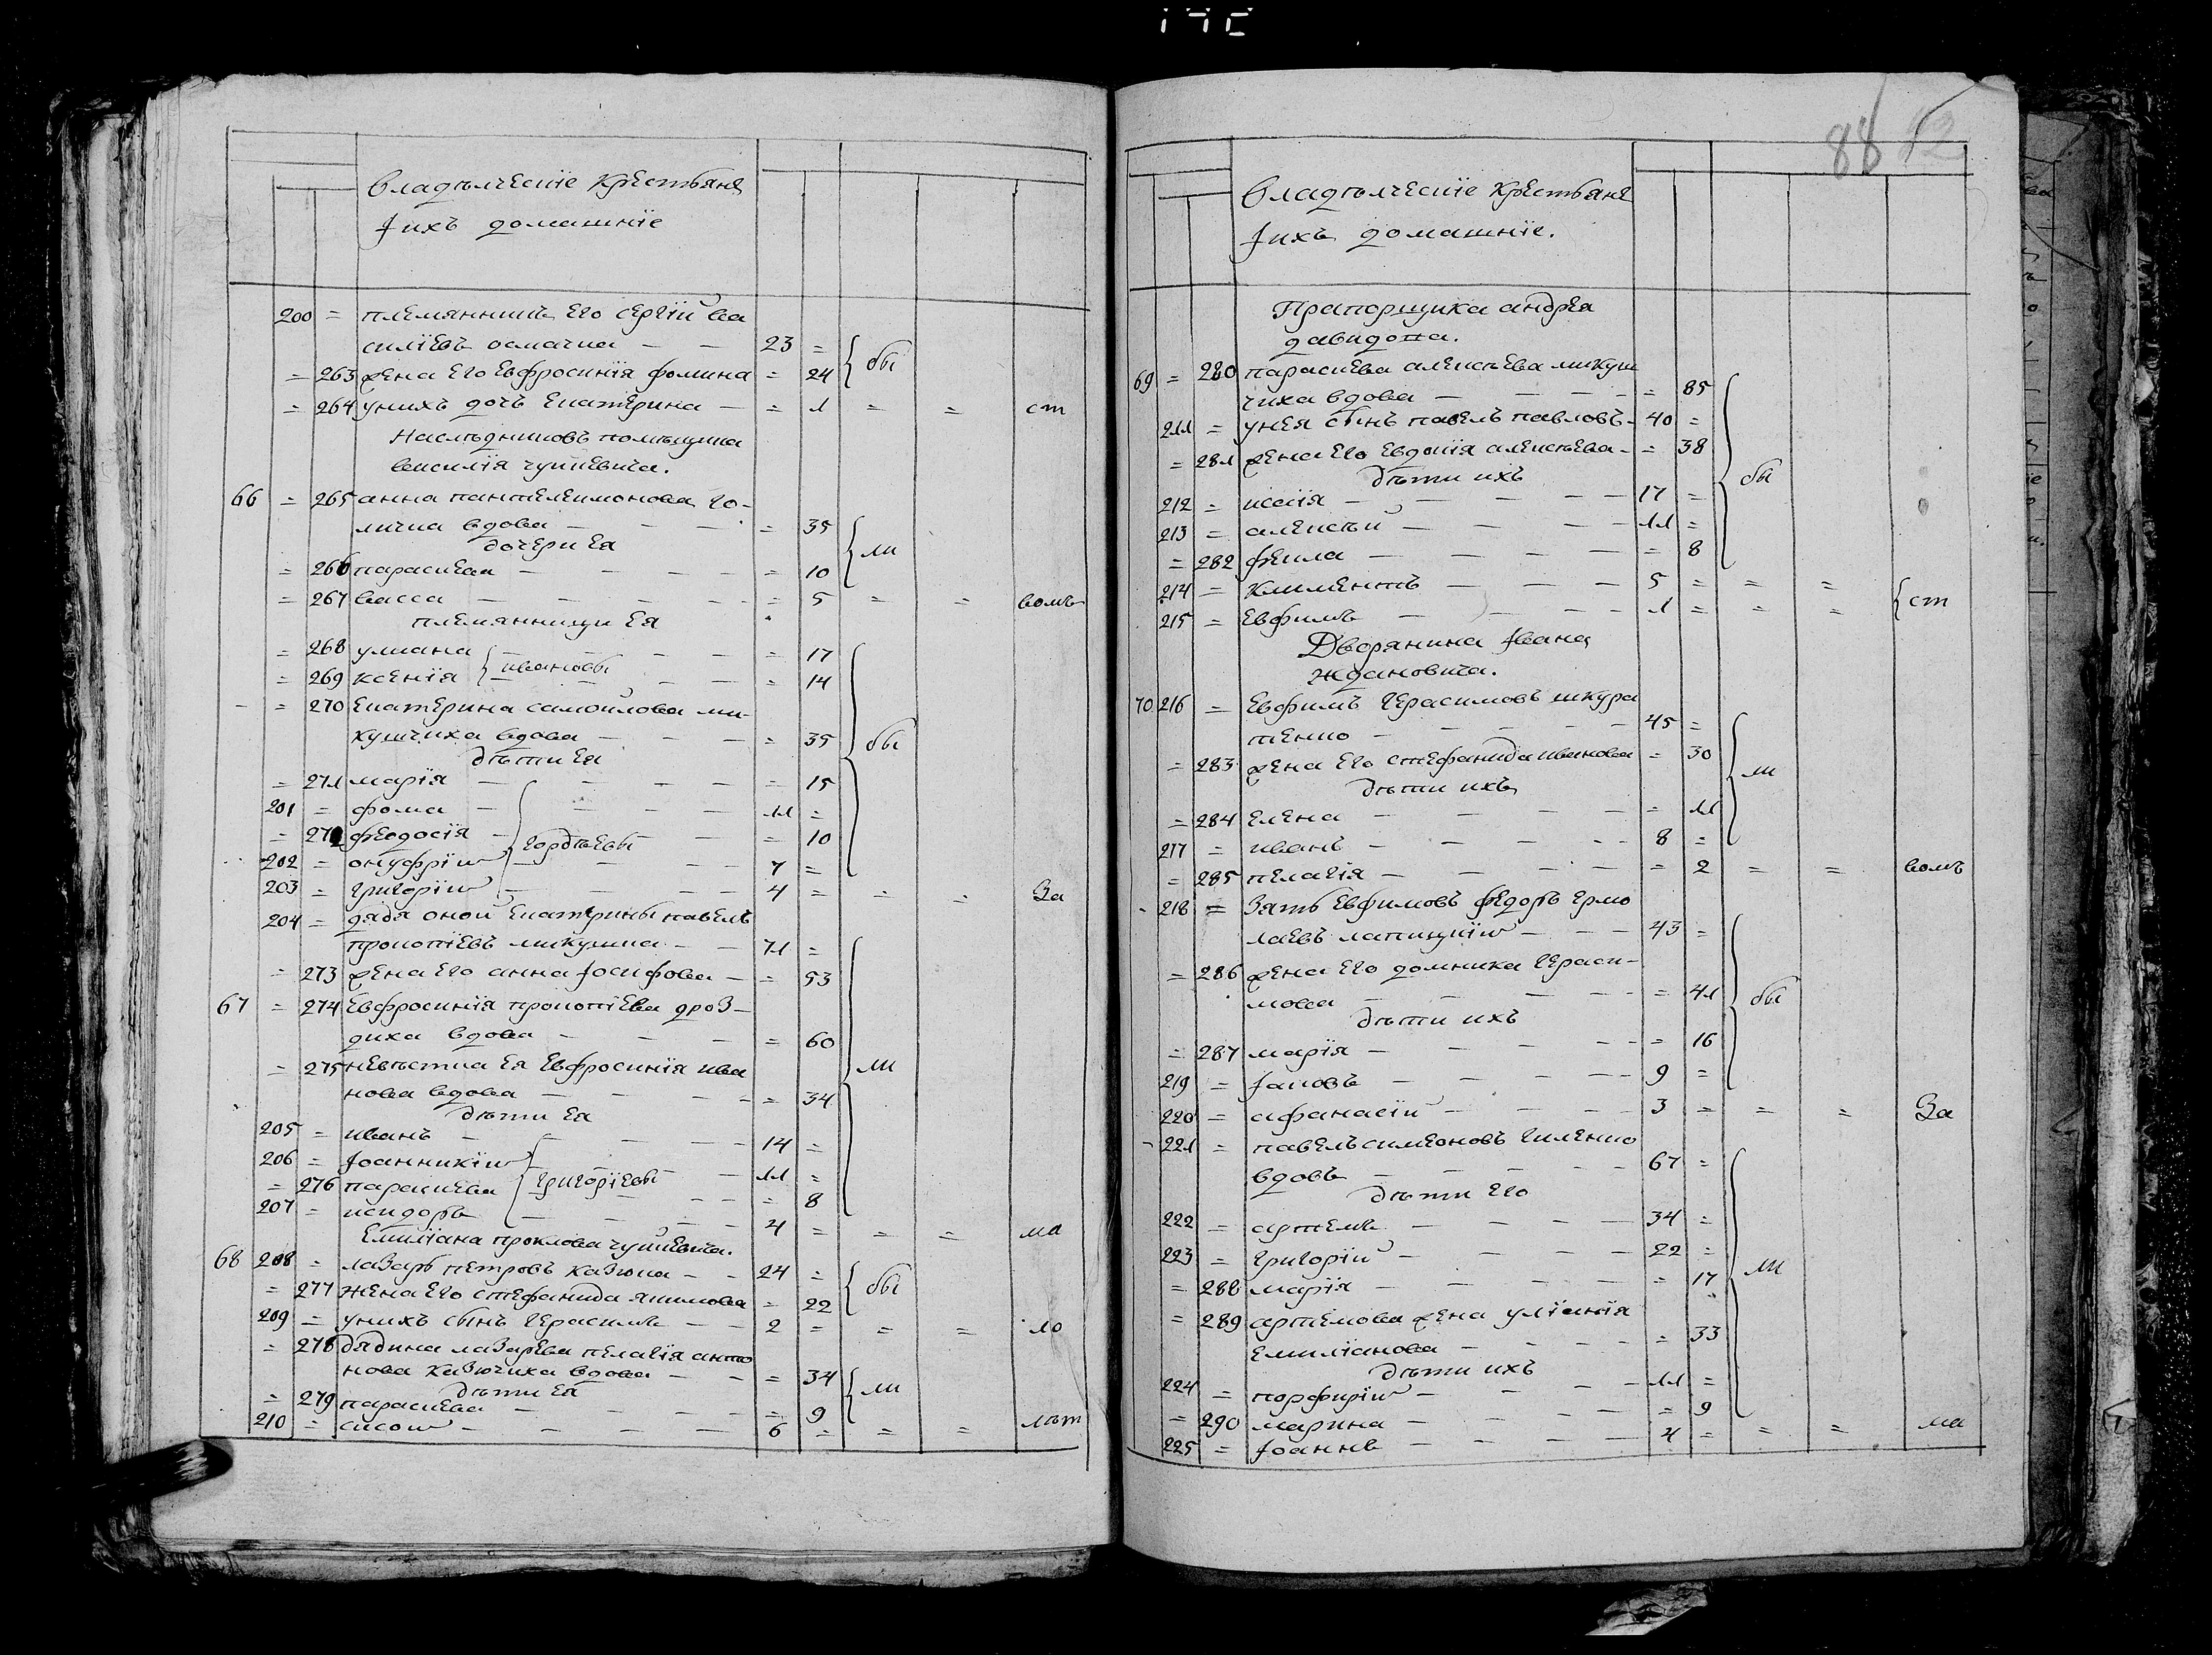 88
Владѣлческіе крестьяне
Іихъ домашніе
200 = племянникъ его сергій ва
силіевъ осмачка — — 23 = бы
= 263 жена его евфросинія фомина = 24
= 264 унихъ дочь екатерина — = 1 = = ст
Наслѣдниковъ помѣщика
василія чуйкевича.
66 = 265 анна пантелеимонова го-
личка вдова — — = 35 ли
дочери ея
= 266 параскева — — = 10
= 267 васса — — = 5 = = вомъ
племянници ея
= 268 улиана — — = 17
= 269 ксенія ивановы — — = 14
= 270 екатерина самоилова ми-
кушчиха вдова — — = 35 бы
дѣти ея
= 271 марія — — = 15
201 = фома — — 11 =
= 272 феодосія — гордѣевы — = 10
202 = онуфрій — — 7 =
203 = григорій — — 4 = = = За
204 = дядя оной екатерины павелъ
прокопіевъ микушка — — 71 =
= 273 жена его анна Іосифова — = 53
67 = 274 евфросинія прокопіева дроз-
диха вдова — — = 60
= 275 невѣстка ея евфросинія ива ли
нова вдова — — = 34
дѣти ея
205 = иванъ — — 14 =
206 = Іоанникій — 11 =
= 276 параскева григоріевы — = 8
207 = исидоръ — — 4 = = = ма
Емиліана проклова чуйкевича.
68 208 = лазарь петровъ казюка — — 24 = бы
= 277 жена его стефанида якимова = 22
209 = унихъ сынъ герасимъ — — 2 = = = ло
= 278 дядина лазарева пелагія анто
нова казючиха вдова — — = 34 ли
дѣти ея
= 279 параскева — — = 9
210 = сисой — — 6 = = = лѣт
Владѣлческіе крестьяне
Іихъ домашніе.
Прапорщика андрея
давидова.
69 = 280 параскева алексѣева микуш
чиха вдова — — = 85
211 = унея сынъ павелъ павловъ — 40 =
= 281 жена его евдокія алексѣева — = 38
дѣти ихъ бы
212 = исаія — — 17 =
213 = алексѣй — — 11 =
= 282 фекла — — = 8
214 = климентъ — — 5 = = = ст
215 = евфимъ — — 1 = = =
Дворянина Івана
ждановича.
70 216 = евфимъ герасимовъ шкура
тенко — — 45 =
= 283 жена его стефанида иванова = 30
дѣти ихъ ли
= 284 елена — — = 11
217 = иванъ — — 8 =
= 285 пелагія — — = 2 = = вомъ
218 = Зять евфимовъ федоръ ермо
лаевъ лапицкій — — 43 =
= 286 жена его домника гераси-
мова — — = 41 бы
дѣти ихъ
= 287 марія — — = 16
219 = Іаковъ — — 9 =
220 = афанасій — — 3 = = = За
221 = павелъ симеоновъ гиленко
вдовъ — — 67 =
дѣти его
222 = артемъ — — 34 =
223 = григорій — — 22 =
= 288 марія — — = 17 ли
= 289 артемова жена уліанія
емиліанова — — = 33
дѣти ихъ
224 = порфирій — — 11 =
= 290 марина — — = 9
225 = Іоаннъ — — 4 = = = ма